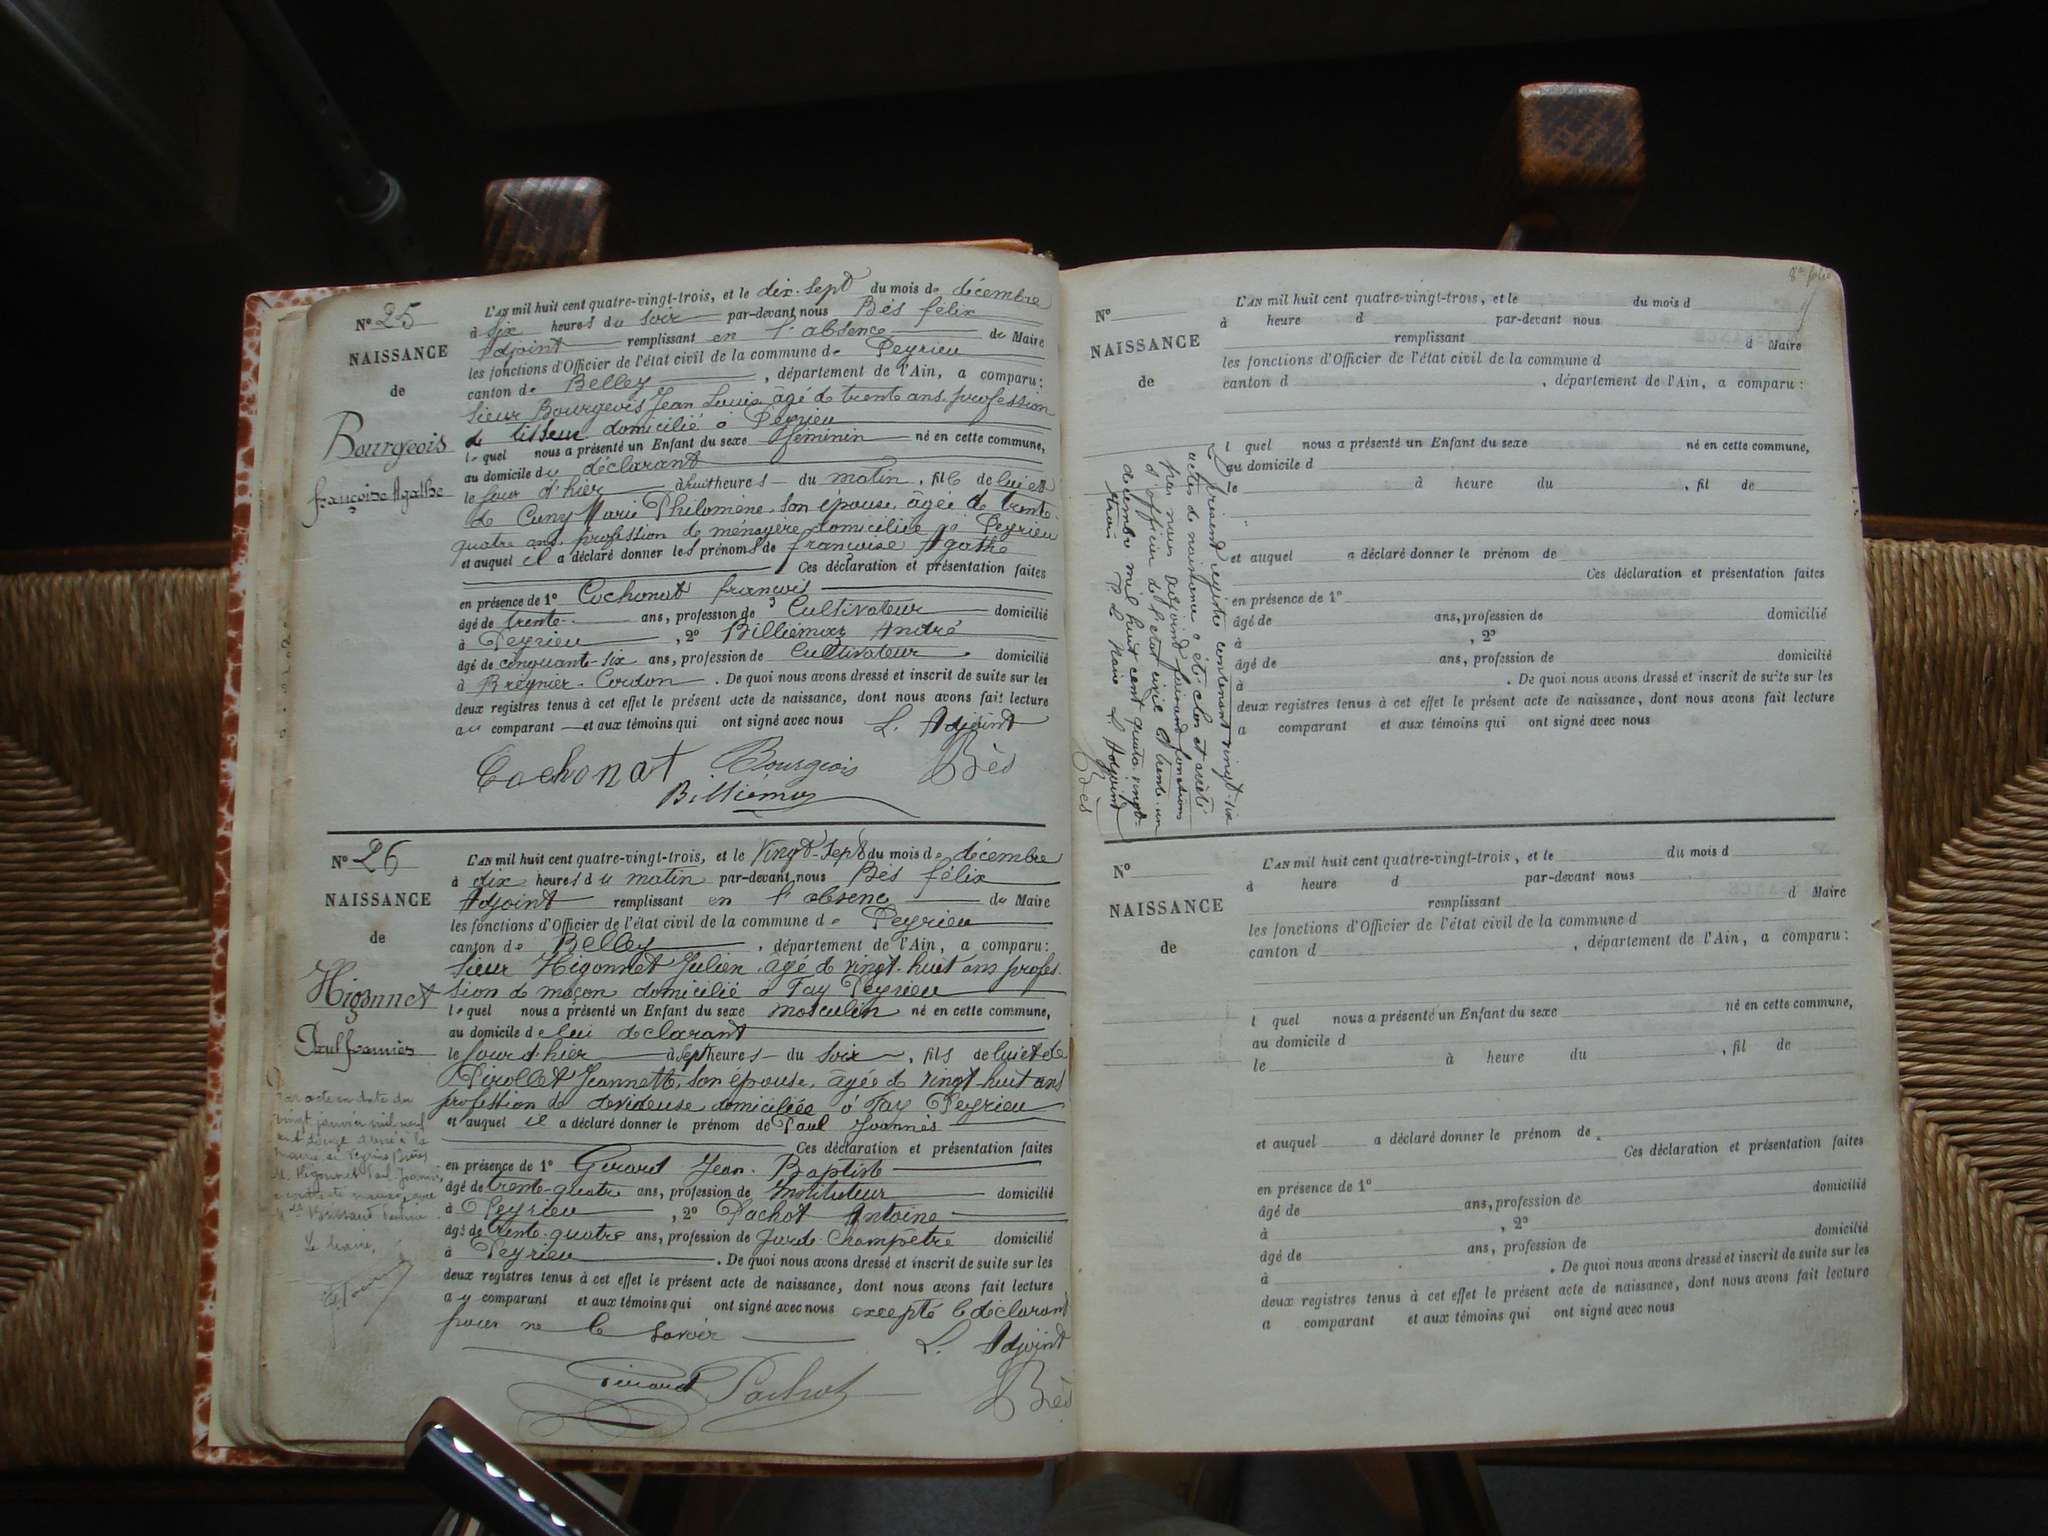 Nº 25
NAISSANCE
de
Bourgeois
françoise Agathe
L'AN mil huit cent quatre-vingt-trois, et le dix-sept du mois de décembre
à six heures du soir par-devant nous Bés félix
Adjoint remplissant en l'absence de Maire
les fonctions d'Officier de l'état civil de la commune de Peyrieu
canton de Belley, département de l'Ain, a comparu :
Sieur Bourgeois Jean Louis âgé de trente ans profession
de tisseur domicilié à Peyrieu
lequel nous a présenté un Enfant du sexe féminin né en cette commune,
au domicile du déclarant
le jour d'hier à huit heures du matin, fille de lui et
de Cuny Marie Philomène, son épouse, âgée de trente-
quatre ans, profession de ménagère domiciliée à Peyrieu
et auquel il a déclaré donner les prénoms de françoise Agathe
Ces déclaration et présentation faites
en présence de 1º Cochonat françois
âgé de trente ans, profession de Cultivateur domicilié
à Peyrieu, 2º Billiémaz André
âgé de cinquante-six ans, profession de Cultivateur domicilié
à Brégnier-Cordon. De quoi nous avons dressé et inscrit de suite sur les
deux registres tenus à cet effet le présent acte de naissance, dont nous avons fait lecture
au comparant et aux témoins qui ont signé avec nous L. Adjoint
Cochonat Bourgeois Bés
Billiémaz
Nº 26
NAISSANCE
de
Higonnet
Paul Joannès
L'AN mil huit cent quatre-vingt-trois, et le vingt-sept du mois de décembre
à dix heures du matin par-devant nous Bés félix
Adjoint remplissant en l'absence du Maire
les fonctions d'Officier de l'état civil de la commune de Peyrieu
canton de Belley, département de l'Ain, a comparu :
Sieur Higonnet Julien, âgé de vingt-huit ans profes-
sion de maçon domicilié à Fay Peyrieu
lequel nous a présenté un Enfant du sexe masculin né en cette commune,
au domicile de lui déclarant
le jour d'hier à sept heures du soir, fils de lui et de
Pirollet Jeannette, son épouse, âgée de vingt-huit ans
profession de devideuse domiciliée à Fay Peyrieu
et auquel il a déclaré donner le prénom de Paul Joannès
Ces déclaration et présentation faites
en présence de 1º Gerard Jean-Baptiste
âgé de trente-quatre ans, profession de Instituteur domicilié
à Peyrieu, 2º Pachot Antoine
âgé de trente-quatre ans, profession de Garde-Champêtre domicilié
à Peyrieu. De quoi nous avons dressé et inscrit de suite sur les
deux registres tenus à cet effet le présent acte de naissance, dont nous avons fait lecture
au comparant et aux témoins qui ont signé avec nous excepté le déclarant
pour ne le savoir L. Adjoint
Pachot Bés
Par acte en date du
vingt janvier mil neuf
cent douze dressé à la
mairie de
M. Higonnet Paul Joannès
a contracté mariage avec
Le maire,
8e folio
Nº
NAISSANCE
de
L'AN mil huit cent quatre-vingt-trois, et le du mois d
à heure d par-devant nous
remplissant d Maire
les fonctions d'Officier de l'état civil de la commune d
canton d , département de l'Ain, a comparu :
l quel nous a présenté un Enfant du sexe né en cette commune,
au domicile d
le à heure du , fil de
et auquel a déclaré donner le prénom de
Ces déclaration et présentation faites
en présence de 1º
âgé de ans, profession de domicilié
à , 2º
âgé de ans, profession de domicilié
à . De quoi nous avons dressé et inscrit de suite sur les
deux registres tenus à cet effet le présent acte de naissance, dont nous avons fait lecture
a comparant et aux témoins qui ont signé avec nous
Le présent registre contenant vingt-six
actes de naissance a été clos et arrêté
par nous adjoint faisant fonctions
d'officier de l'état civil le trente-un
décembre mil huit cent quatre-vingt-
trois P. le Maire L. Adjoint
Bès
Nº
NAISSANCE
de
L'AN mil huit cent quatre-vingt-trois, et le du mois d
à heure d par-devant nous
remplissant d Maire
les fonctions d'Officier de l'état civil de la commune d
canton d , département de l'Ain, a comparu :
l quel nous a présenté un Enfant du sexe né en cette commune,
au domicile d
le à heure du , fil de
et auquel a déclaré donner le prénom de
Ces déclaration et présentation faites
en présence de 1º
âgé de ans, profession de domicilié
à , 2º
âgé de ans, profession de domicilié
à . De quoi nous avons dressé et inscrit de suite sur les
deux registres tenus à cet effet le présent acte de naissance, dont nous avons fait lecture
a comparant et aux témoins qui ont signé avec nous